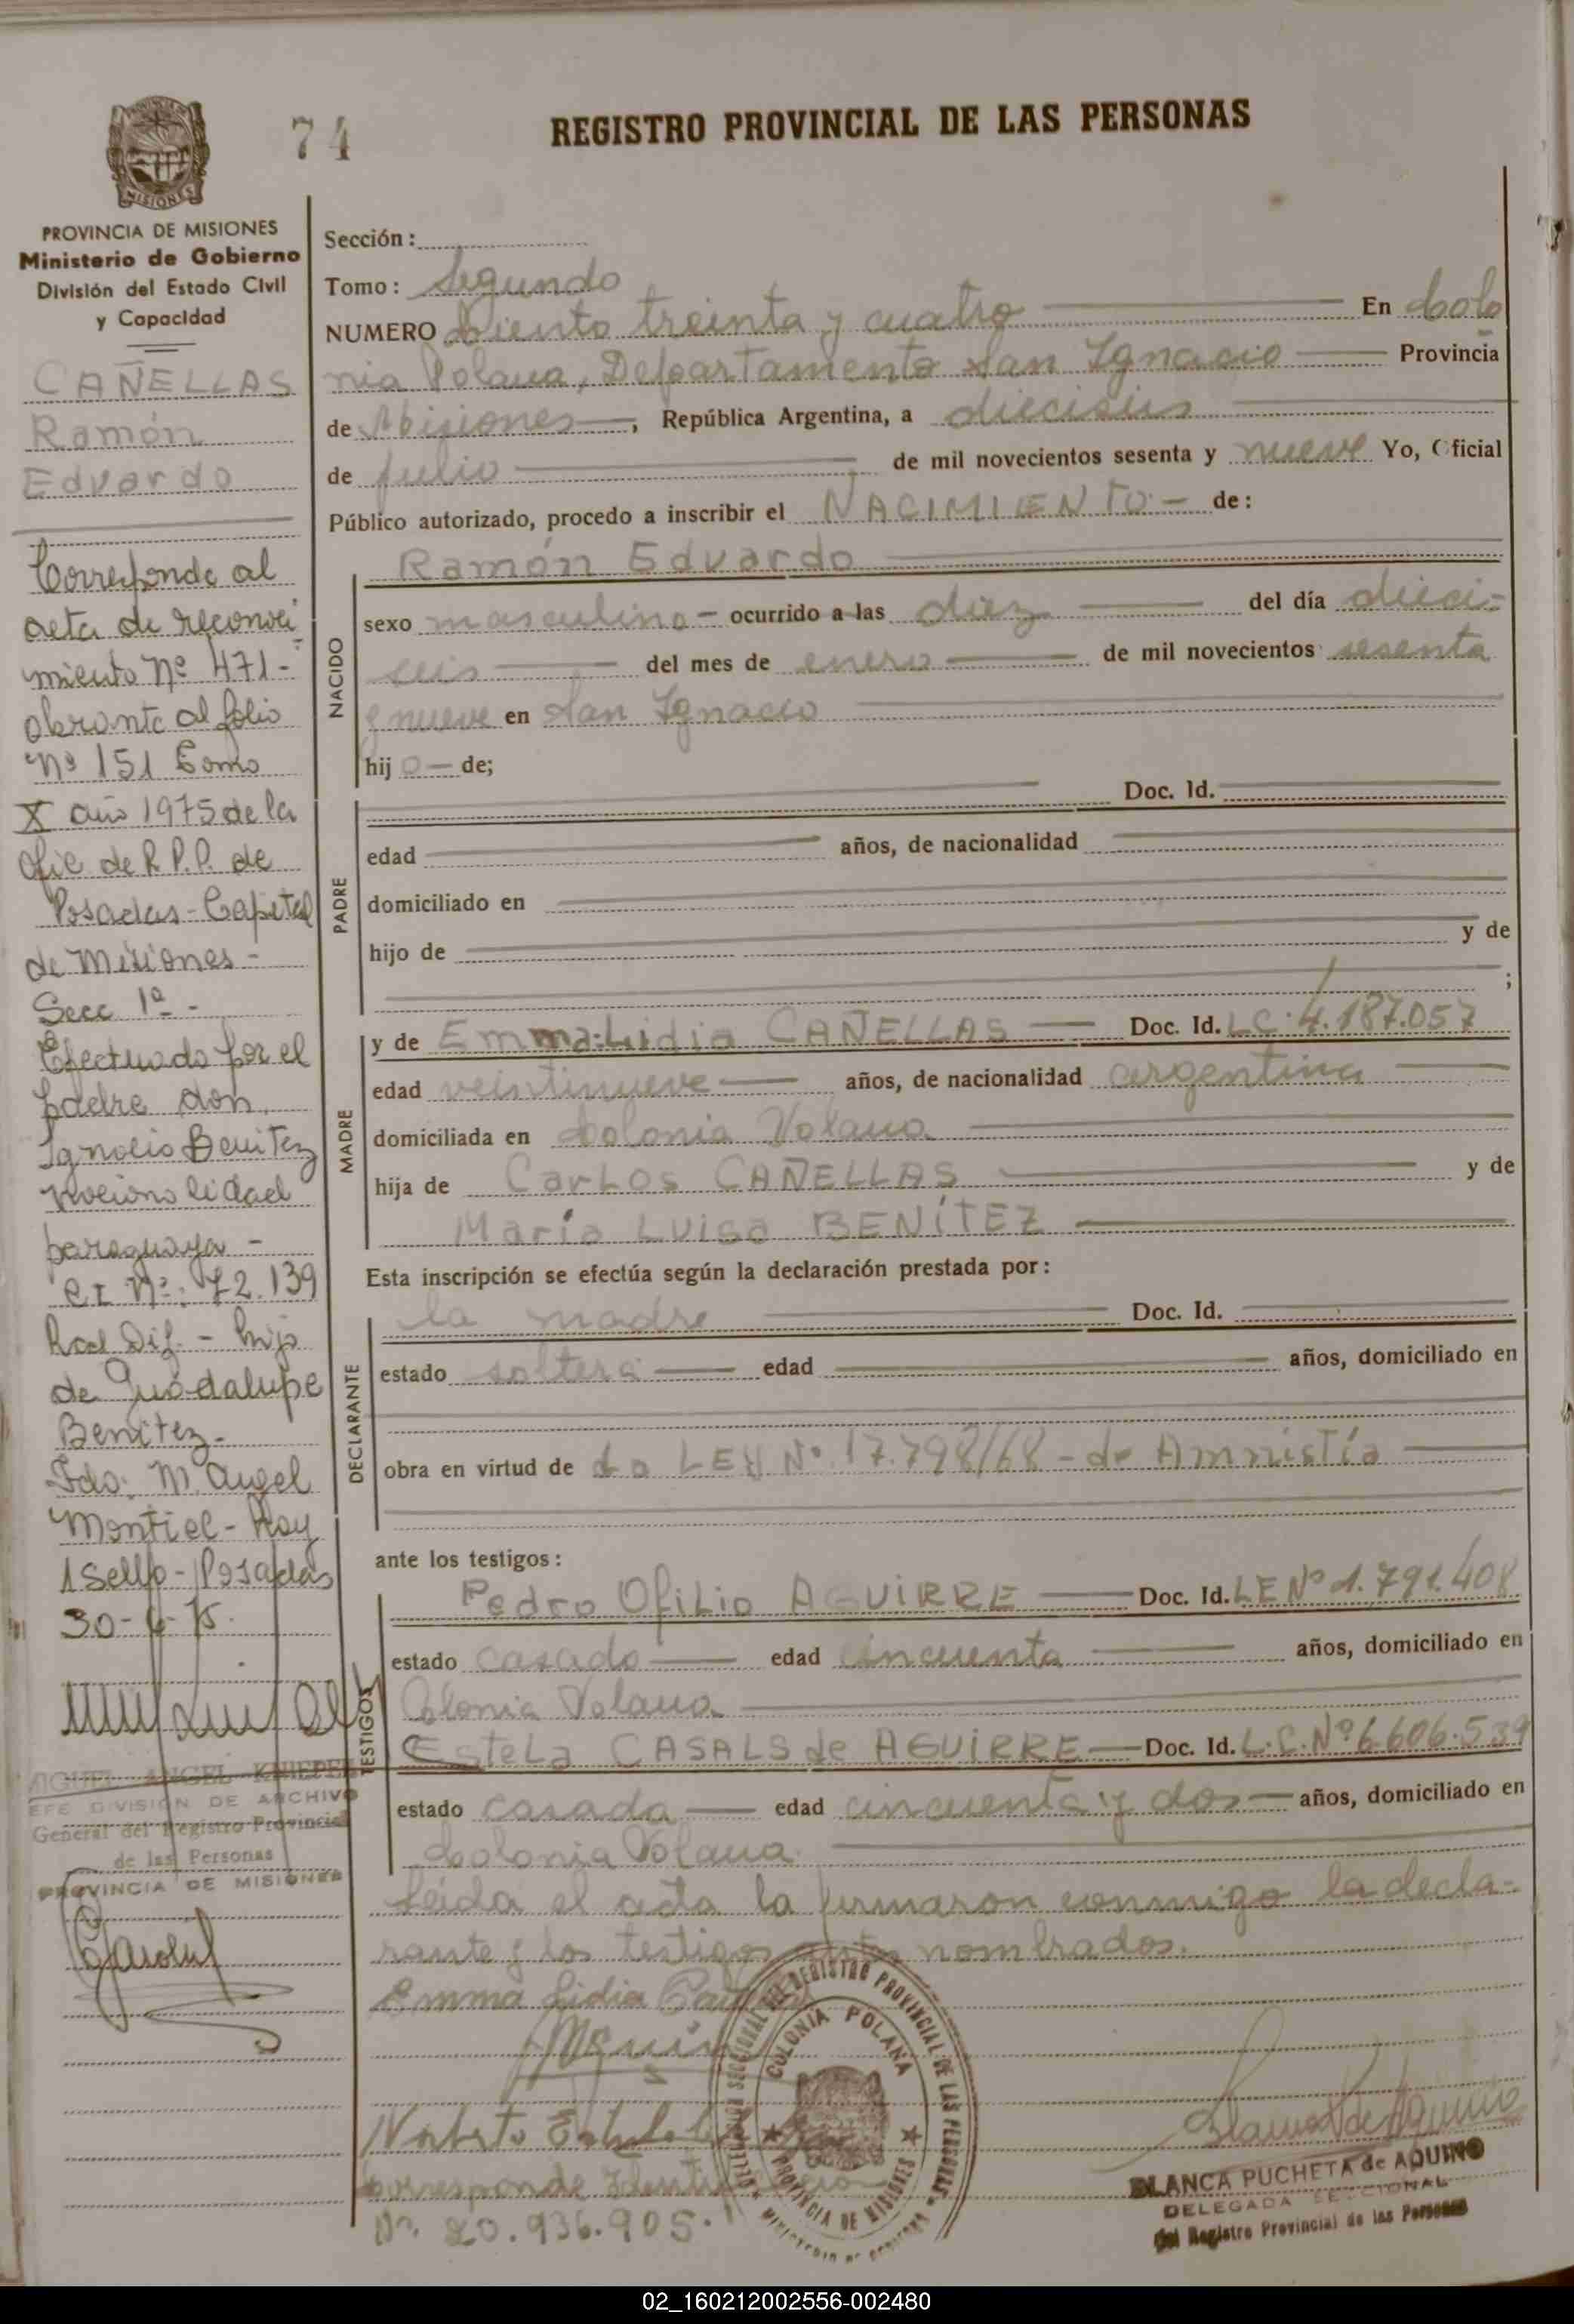 74
REGISTRO PROVINCIAL DE LAS PERSONAS
PROVINCIA DE MISIONES
Ministerio de Gobierno
División del Estado Civil
y Capacidad
CAÑELLAS
Ramón
Eduardo
Corresponde al
acta de reconoci
miento Nº 471-
obrante al folio
Nº 151 Tomo
X año 1975 de la
Ofic de R.P.P. de
Posadas-Capital
de Misiones-
Secc 1ª-
Efectuado por el
padre don
Ignacio Benitez
nacionalidad
paraguaya -
CI Nº: 72.139
- hijo
de Guadalupe
Benitez-
Fdo: M. Angel
Montiel- Hay
1 Sello-Posadas
30-6-75.
MIGUEL ANGEL
DIVISION DE ARCHIVO
General del Registro Provincial
de las Personas
PROVINCIA DE MISIONES
Sección:
Tomo: Segundo
NUMERO Ciento treinta y cuatro En Colo
nia Polana, Departamento San Ignacio Provincia
de Misiones, República Argentina, a dieciseis
de julio de mil novecientos sesenta y nueve Yo, Oficial
Público autorizado, procedo a inscribir el NACIMIENTO- de:
Ramón Eduardo
NACIDO
sexo masculino- ocurrido a las diez del día dieci-
seis del mes de enero de mil novecientos sesenta
y nueve en San Ignacio
hijo de;
PADRE
Doc. Id.
edad años, de nacionalidad
domiciliado en
hijo de y de
;
MADRE
y de Emma Lidia CAÑELLAS Doc. Id. LC. 4.187.057
edad veintinueve años, de nacionalidad argentina
domiciliada en Colonia Polana
hija de Carlos CAÑELLAS y de
María Luisa BENÍTEZ
Esta inscripción se efectúa según la declaración prestada por:
DECLARANTE
la madre Doc. Id.
estado soltera edad años, domiciliado en
obra en virtud de La LEY Nº 17.798/68 - de Amnistía
ante los testigos:
TESTIGOS
Pedro Ofilio AGUIRRE Doc. Id. LE Nº 1.791.408
estado casado edad cincuenta años, domiciliado en
Colonia Polana
Estela CASALS de AGUIRRE Doc. Id. L.C. Nº 6.606.539
estado casada edad cincuenta y dos años, domiciliado en
Colonia Polana
Leida el acta la firmaron conmigo la decla-
rante y los testigos antes nombrados.
Emma Lidia
REGISTRO PROVINCIAL DE LAS PERSONAS
COLONIA POLANA
PROVINCIA DE MISIONES
Corresponde
Nº. 20.936.905.
BLANCA PUCHETA de AQUINO
DELEGADA SECCIONAL
del Registro Provincial de las Personas
02_160212002556-002480